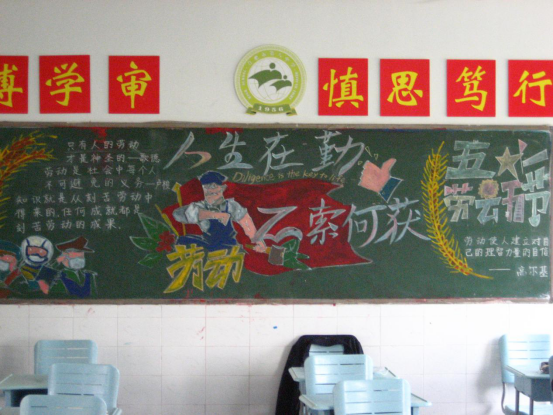 博 学 审 慎 思 笃 行
1926
只有人的劳动
才是神圣的—高尔基
劳动是社会中每个人
不可避免的义务—卢梭
知识就是从刻苦劳动中
得来的,任何成就都是
刻苦劳动的成果.
人生在勤
Diligence is the key to
不索何获
劳动
五一
劳动节
劳动使人建立对自
己的理智力量的自信
——高尔基